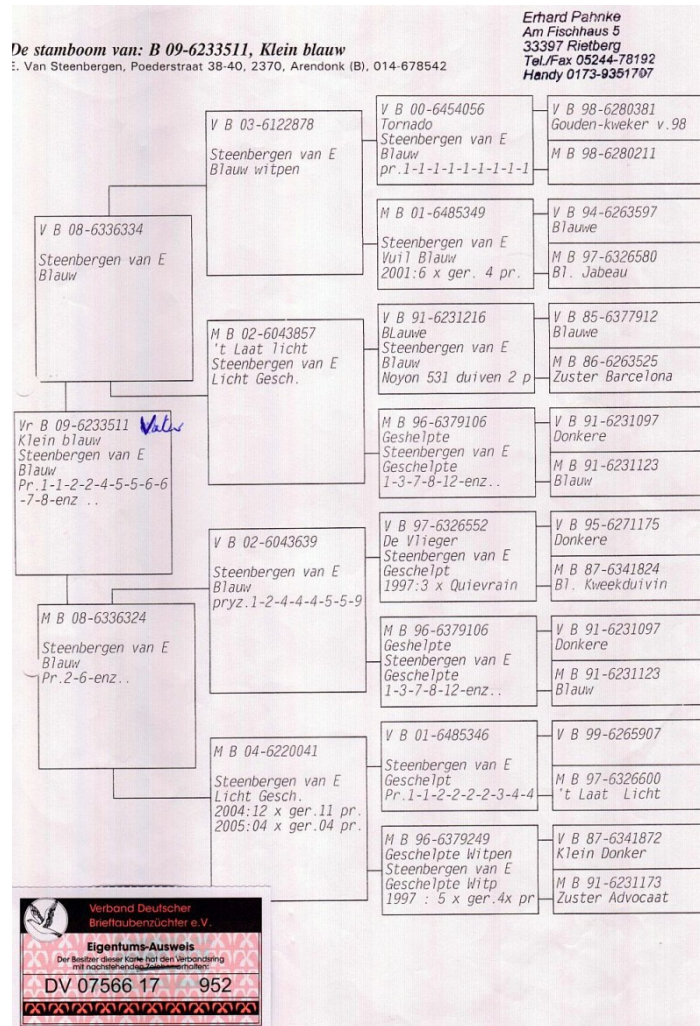 Erhard Pahnke
Am Fischhaus 5
33397 Rietberg
Tel./Fax 05244-78192
Handy 0173-9351707
De stamboom van: B 09-6233511, Klein blauw
E. Van Steenbergen, Poederstraat 38-40, 2370, Arendonk (B), 014-678542
Vr B 09-6233511 Vater
Klein blauw
Steenbergen van E
Blauw
Pr.1-1-2-2-4-5-5-6-6
-7-8-enz ..
V B 08-6336334
Steenbergen van E
Blauw
M B 08-6336324
Steenbergen van E
Blauw
Pr.2-6-enz..
V B 03-6122878
Steenbergen van E
Blauw witpen
M B 02-6043857
't Laat licht
Steenbergen van E
Licht Gesch.
V B 02-6043639
Steenbergen van E
Blauw
pryz.1-2-4-4-4-5-5-9
M B 04-6220041
Steenbergen van E
Licht Gesch.
2004:12 x ger.11 pr.
2005:04 x ger.04 pr.
V B 00-6454056
Tornado
Steenbergen van E
Blauw
pr.1-1-1-1-1-1-1-1-1
M B 01-6485349
Steenbergen van E
Vuil Blauw
2001:6 x ger. 4 pr.
V B 91-6231216
BLauwe
Steenbergen van E
Blauw
Noyon 531 duiven 2 p
M B 96-6379106
Geshelpte
Steenbergen van E
Geschelpte
1-3-7-8-12-enz..
V B 97-6326552
De Vlieger
Steenbergen van E
Geschelpt
1997:3 x Quievrain
M B 96-6379106
Geshelpte
Steenbergen van E
Geschelpte
1-3-7-8-12-enz..
V B 01-6485346
Steenbergen van E
Geschelpt
Pr.1-1-2-2-2-2-3-4-4
M B 96-6379249
Geschelpte Witpen
Steenbergen van E
Geschelpte Witp
1997 : 5 x ger.4x pr
V B 98-6280381
Gouden-kweker v.98
M B 98-6280211
V B 94-6263597
Blauwe
M B 97-6326580
Bl. Jabeau
V B 85-6377912
Blauwe
M B 86-6263525
Zuster Barcelona
V B 91-6231097
Donkere
M B 91-6231123
Blauw
V B 95-6271175
Donkere
M B 87-6341824
Bl. Kweekduivin
V B 91-6231097
Donkere
M B 91-6231123
Blauw
V B 99-6265907
M B 97-6326600
't Laat Licht
V B 87-6341872
Klein Donker
M B 91-6231173
Zuster Advocaat
Verband Deutscher
Brieftaubenzüchter e.V.
Eigentums-Ausweis
Der Besitzer dieser Karte hat den Verbandsring
mit nachstehenden Zeichen erhalten:
DV 07566 17 952